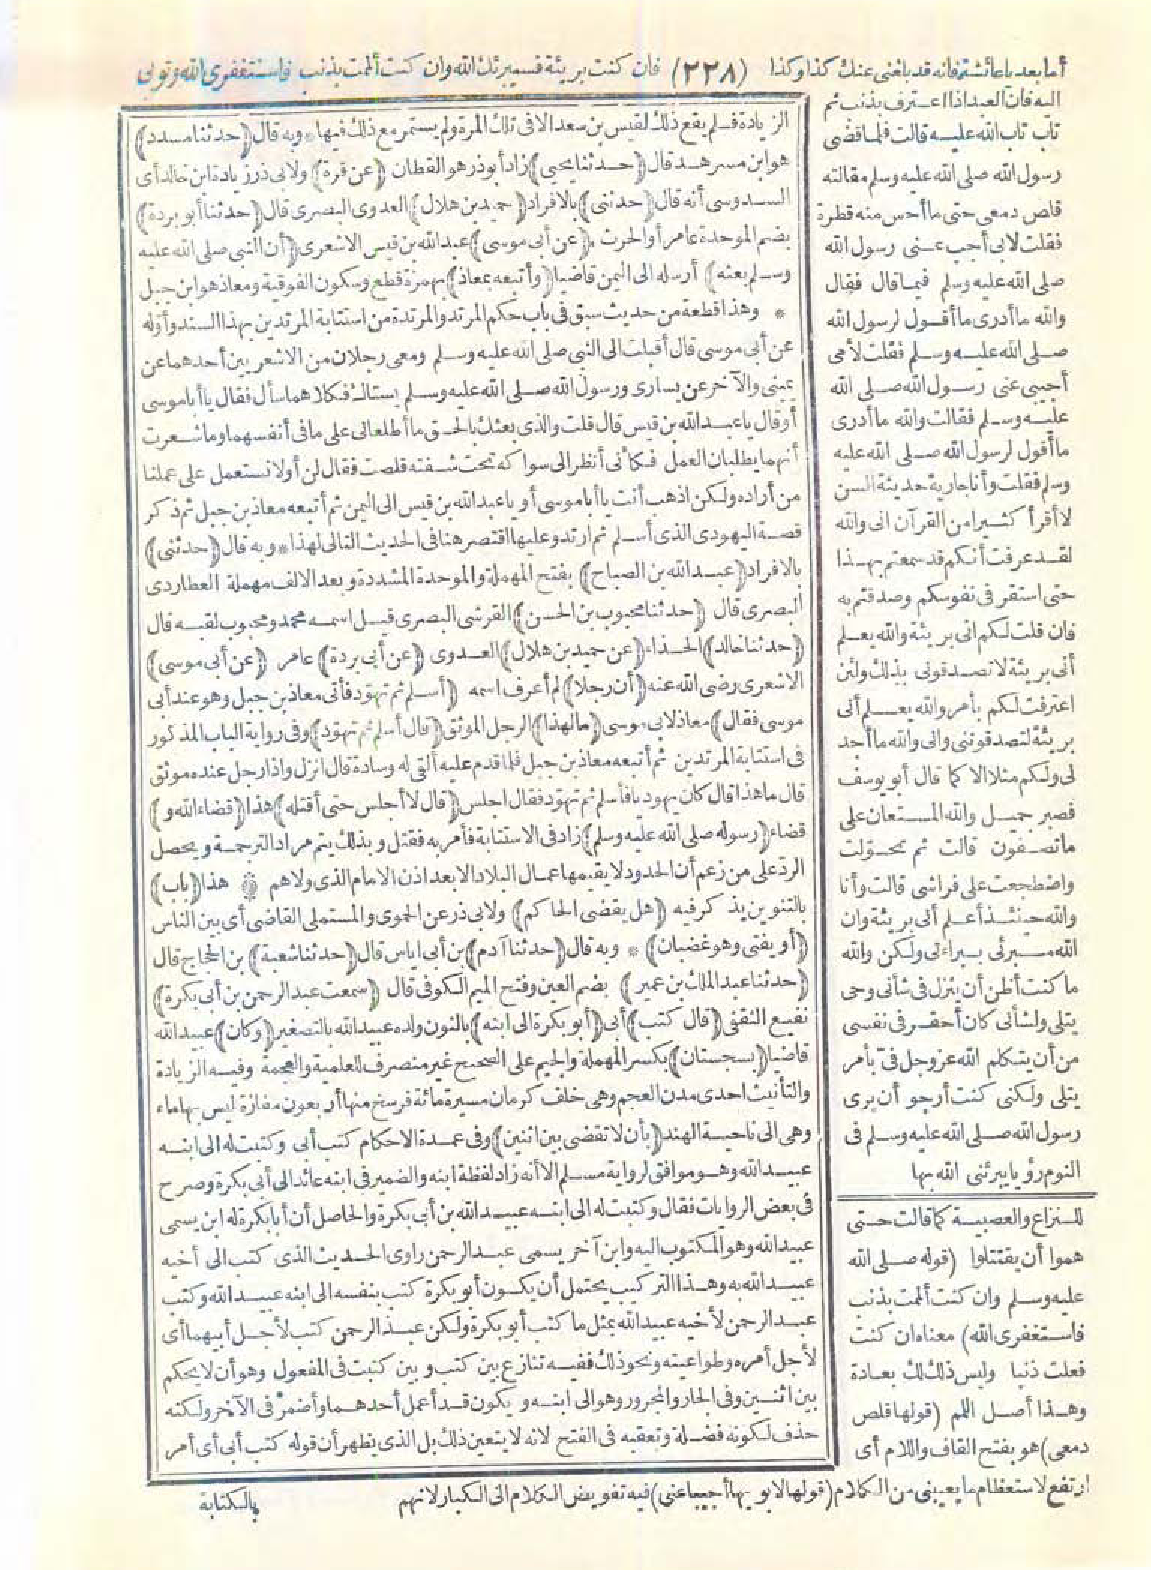 أما بعد يا عائشة فانه قد بلغني عنك كذا وكذا (٢٢٨) فان كنت بريئة فسيبرئك الله وان كنت ألممت بذنب فاستغفري الله وتوبي
اليه فان العبد اذا اعترف بذنب ثم
تاب تاب الله عليه قالت فلما قضى
رسول الله صلى الله عليه وسلم مقالته
قلص دمعي حتى ما أحس منه قطرة
فقلت لابي أجب عني رسول الله
صلى الله عليه وسلم فيما قال فقال
والله ما أدري ما أقول لرسول الله
صلى الله عليه وسلم فقلت لأمي
أجيبي عني رسول الله صلى الله
عليه وسلم فقالت والله ما أدري
ما أقول لرسول الله صلى الله عليه
وسلم فقلت وأنا جارية حديثة السن
لا أقرأ كثيرا من القرآن اني والله
لقد عرفت أنكم قد سمعتم بهذا
حتى استقر في نفوسكم وصدقتم به
فان قلت لكم اني بريئة والله يعلم
أني بريئة لا تصدقوني بذلك ولئن
اعترفت لكم بأمر والله يعلم أني
بريئة لتصدقونني واني والله ما أجد
لي ولكم مثلا الا كما قال أبو يوسف
فصبر جميل والله المستعان على
ما تصفون قالت ثم تحولت
واضطجعت على فراشي قالت وأنا
والله حينئذ أعلم أني بريئة وان
الله مبرئي ببراءتي ولكن والله
ما كنت أظن أن ينزل في شأني وحي
يتلى ولشأني كان أحقر في نفسي
من أن يتكلم الله عز وجل في بأمر
يتلى ولكني كنت أرجو أن يرى
رسول الله صلى الله عليه وسلم في
النوم رؤيا يبرئني الله بها
للنزاع والعصبية كما قالت حتى
هموا أن يقتتلوا (قوله صلى الله
عليه وسلم وان كنت ألممت بذنب
فاستغفري الله) معناه ان كنت
فعلت ذنبا وليس ذلك لك بعادة
وهذا أصل اللمم (قولها قلص
دمعي) هو بفتح القاف واللام أي
ارتفع لاستعظام ما يعيبني من الكلام (قولها لابويها أجيبا عني) فيه تفويض الكلام الى الكبار لانهم
الزيادة فلم يقع ذلك لقيس بن سعد الا في تلك المرة ولم يستمر مع ذلك فيها * وبه قال (حدثنا مسدد)
هو ابن مسرهد قال (حدثنا يحيى) زاد أبو ذر هو القطان (عن قرة) ولابي ذر زيادة ابن خالد أي
السدوسي أنه قال (حدثني) بالافراد (حميد بن هلال) العدوي البصري قال (حدثنا أبو بردة)
بضم الموحدة عامر أو الحرث (عن أبي موسى) عبد الله بن قيس الاشعري (أن النبي صلى الله عليه
وسلم بعثه) أرسله الى اليمن قاضيا (وأتبعه بمعاذ) بهمزة قطع وسكون الفوقية ومعاذ هو ابن جبل
* وهذا قطعة من حديث سبق في باب حكم المرتد والمرتدة من استتابة المرتدين بهذا السند وأوله
عن أبي موسى قال أقبلت الى النبي صلى الله عليه وسلم ومعي رجلان من الاشعريين أحدهما عن
يميني والآخر عن يساري ورسول الله صلى الله عليه وسلم يستاك فكلاهما سأل فقال يا أبا موسى
أو قال يا عبد الله بن قيس قال قلت والذي بعثك بالحق ما أطلعاني على ما في أنفسهما وما شعرت
أنهما يطلبان العمل فكأني أنظر الى سواكه تحت شفته قلصت فقال لن أو لا نستعمل على عملنا
من أراده ولكن اذهب أنت يا أبا موسى أو يا عبد الله بن قيس الى اليمن ثم أتبعه معاذ بن جبل ثم ذكر
قصة اليهودي الذي أسلم ثم ارتد وعليها اقتصر هنا في الحديث التالي لهذا * وبه قال (حدثني)
بالافراد (عبد الله بن الصباح) بفتح المهملة والموحدة المشددة وبعد الالف مهملة العطاردي
البصري قال (حدثنا محبوب بن الحسن) القرشي البصري قيل اسمه محمد ومحبوب لقبه قال
(حدثنا خالد) الحذاء (عن حميد بن هلال) العدوي (عن أبي بردة) عامر (عن أبي موسى)
الاشعري رضي الله عنه (أن رجلا) لم أعرف اسمه (أسلم ثم تهود فأتى معاذ بن جبل وهو عند أبي
موسى فقال) معاذ لابي موسى (ما لهذا) الرجل الموثق (قال أسلم ثم تهود) وفي رواية الباب المذكور
في استتابة المرتدين ثم أتبعه معاذ بن جبل فلما قدم عليه ألقى له وسادة قال انزل واذا رجل عنده موثق
قال ما هذا قال كان يهوديا فأسلم ثم تهود فقال اجلس (قال لا أجلس حتى أقتله) هذا (قضاء الله و)
قضاء (رسوله صلى الله عليه وسلم) زاد في الاستتابة فأمر به فقتل وبذلك يتم مراد الترجمة ويحصل
الرد على من زعم أن الحدود لا يقيمها عمال البلاد الا بعد اذن الامام الذي ولاهم * هذا (باب)
بالتنوين يذكر فيه (هل يقضي الحاكم) ولابي ذر عن الحموي والمستملي القاضي أي بين الناس
(أو يفتي وهو غضبان) * وبه قال (حدثنا آدم) بن أبي اياس قال (حدثنا شعبة) بن الحجاج قال
(حدثنا عبد الملك بن عمير) بضم العين وفتح الميم الكوفي قال (سمعت عبد الرحمن بن أبي بكرة)
نفيع الثقفي (قال كتب) أبي (أبو بكرة الى ابنه) بالنون ولده عبيد الله بالتصغير (وكان) عبيد الله
قاضيا (بسجستان) بكسر المهملة والجيم على الصحيح غير منصرف للعلمية والعجمة وفيه الزيادة
والتأنيث احدى مدن العجم وهي خلف كرمان مسيرة مائة فرسخ منها أربعون مفازة ليس بها ماء
وهي الى ناحية الهند (بأن لا تقضي بين اثنين) وفي عمدة الاحكام كتب أبي وكتبت له الى ابنه
عبيد الله وهو موافق لرواية مسلم الا أنه زاد لفظة ابنه والضمير في ابنه عائد الى أبي بكرة وصرح
في بعض الروايات فقال وكتبت له الى ابنه عبيد الله بن أبي بكرة والحاصل أن أبا بكرة له ابن يسمى
عبيد الله وهو المكتوب اليه وابن آخر يسمى عبد الرحمن راوي الحديث الذي كتب الى أخيه
عبيد الله به وهذا التركيب يحتمل أن يكون أبو بكرة كتب بنفسه الى ابنه عبيد الله وكتب
عبد الرحمن لأخيه عبيد الله بمثل ما كتب أبو بكرة ولكن عبد الرحمن كتب لأجل أبيهما أي
لأجل أمره وطواعيته ونحو ذلك ففيه تنازع بين كتب وبين كتبت في المفعول وهو أن لا يحكم
بين اثنين وفي الجار والمجرور وهو الى ابنه ويكون قد أعمل أحدهما وأضمر في الآخر ولكنه
حذف لكونه فضلة وتعقبه في الفتح لانه لا يتعين ذلك بل الذي يظهر أن قوله كتب أبي أي أمر
بالكتابة